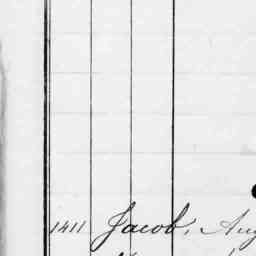 1411 Jacob, Aug